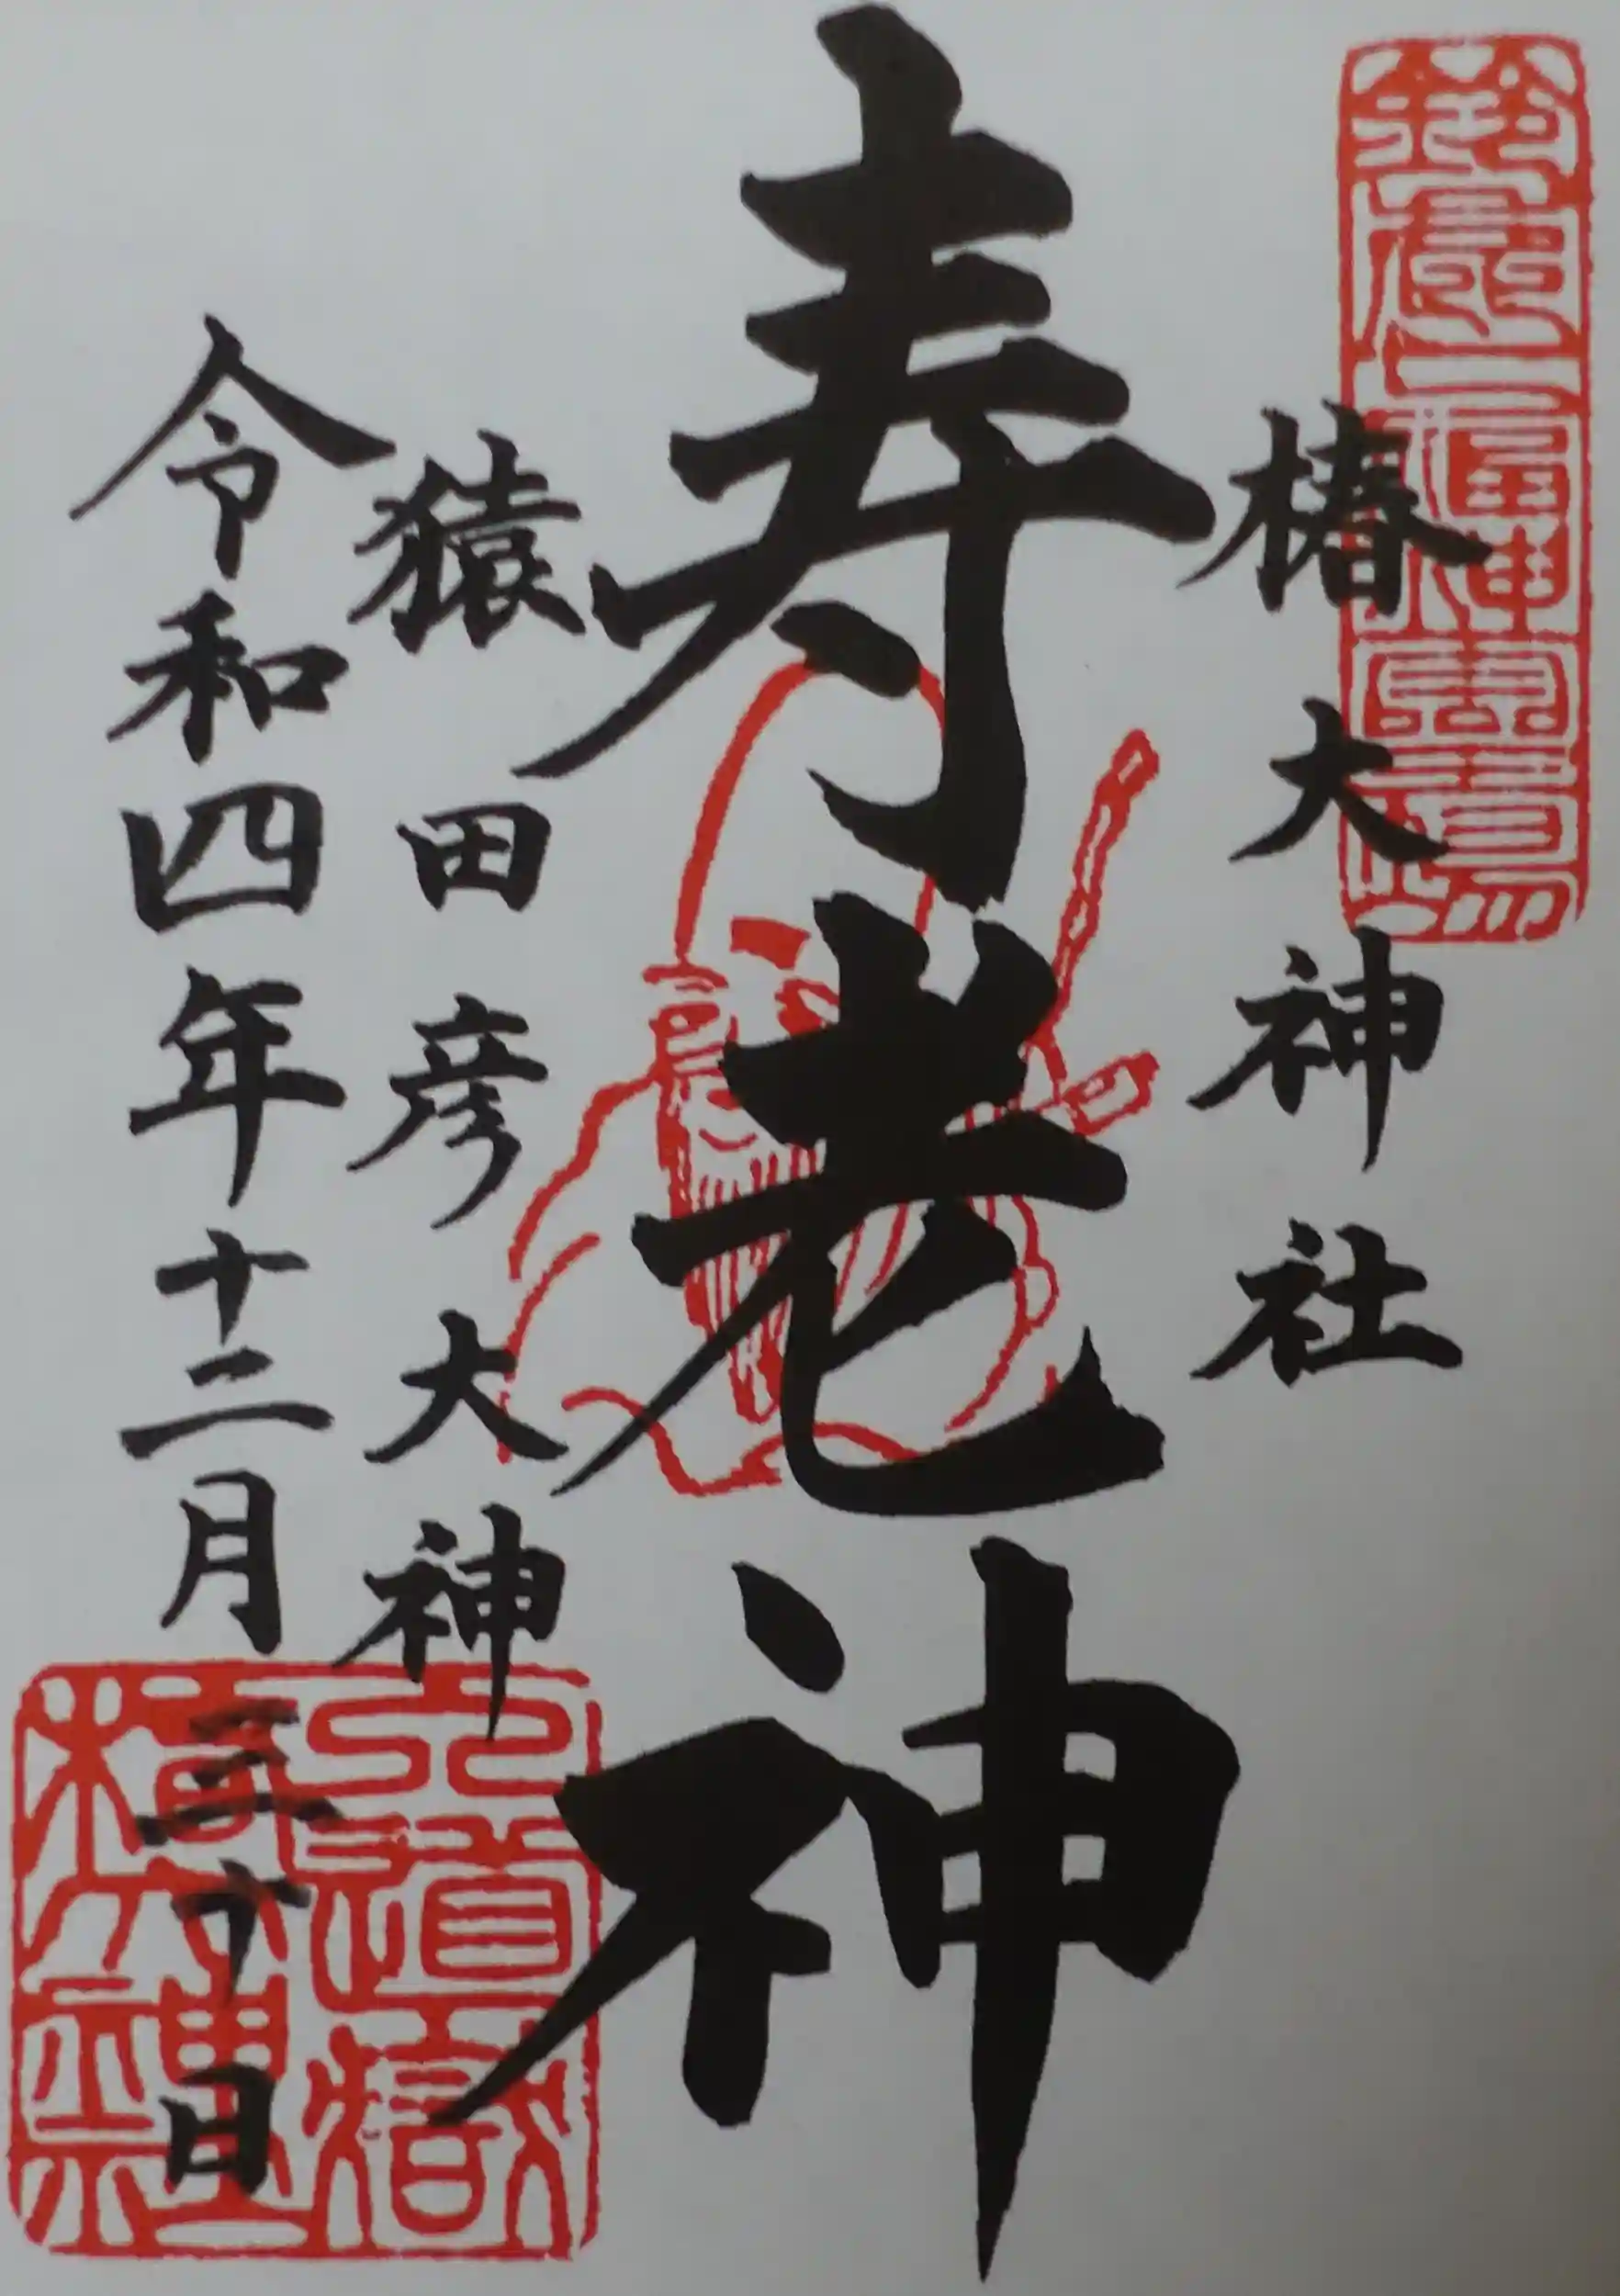 椿大神社
寿老神
猿田彦大神
令和四年十二月三十日